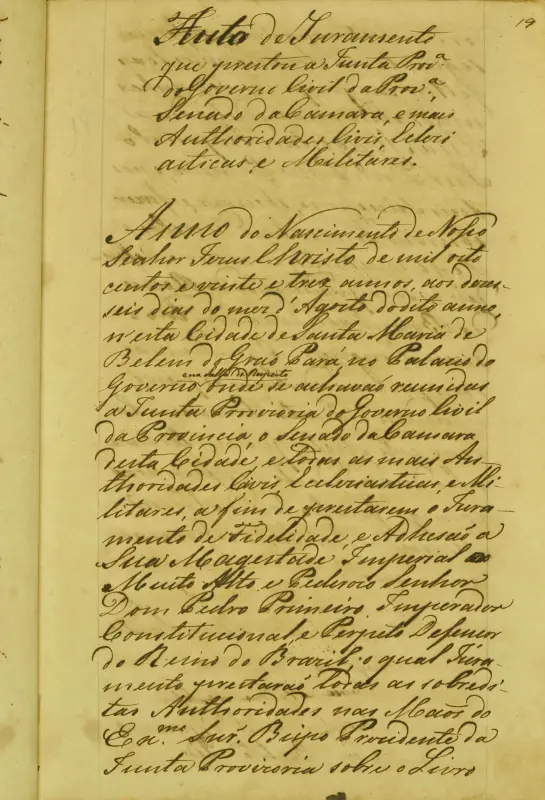 19
Auto de Juramento
que prestou a Junta Prov.ª
do Governo Civil da Prov.ª,
Senado da Camara, e mais
Authoridades Civis, Eclesi
asticas, e Militáres.
Anno do Nascimento de Nosso
Senhor Jesus Christo de mil oito
centos e vinte e tres annos, aos dezes-
seis dias do mez d'Agosto do dito anno,
n'esta Cidade de Santa Maria de
Belem do Graõ Pará no Palacio do
ena salla do Respeito
Governo, onde se achavaõ reunidas
a Junta Provisoria do Governo Civil
da Provincia, o Senado da Camara
desta Cidade, e todas as mais Au-
thoridades Civis, Ecclesiasticas, e Mi-
litares, a fim de prestarem o Jura-
mento de Fidelidade, e Adhesaõ a
Sua Magestade Imperial o
Muito Alto, e Poderozo Senhor
Dom Pedro Primeiro, Imperador
Constitucional e Perpeto Defensor
do Reino do Brazil; o qual Jura-
mento prestaraõ todas as sobredi-
tas Authoridades nas Maõs do
Ex.mo Snr. Bispo Prezidente da
Junta Provizoria sobre o Livro